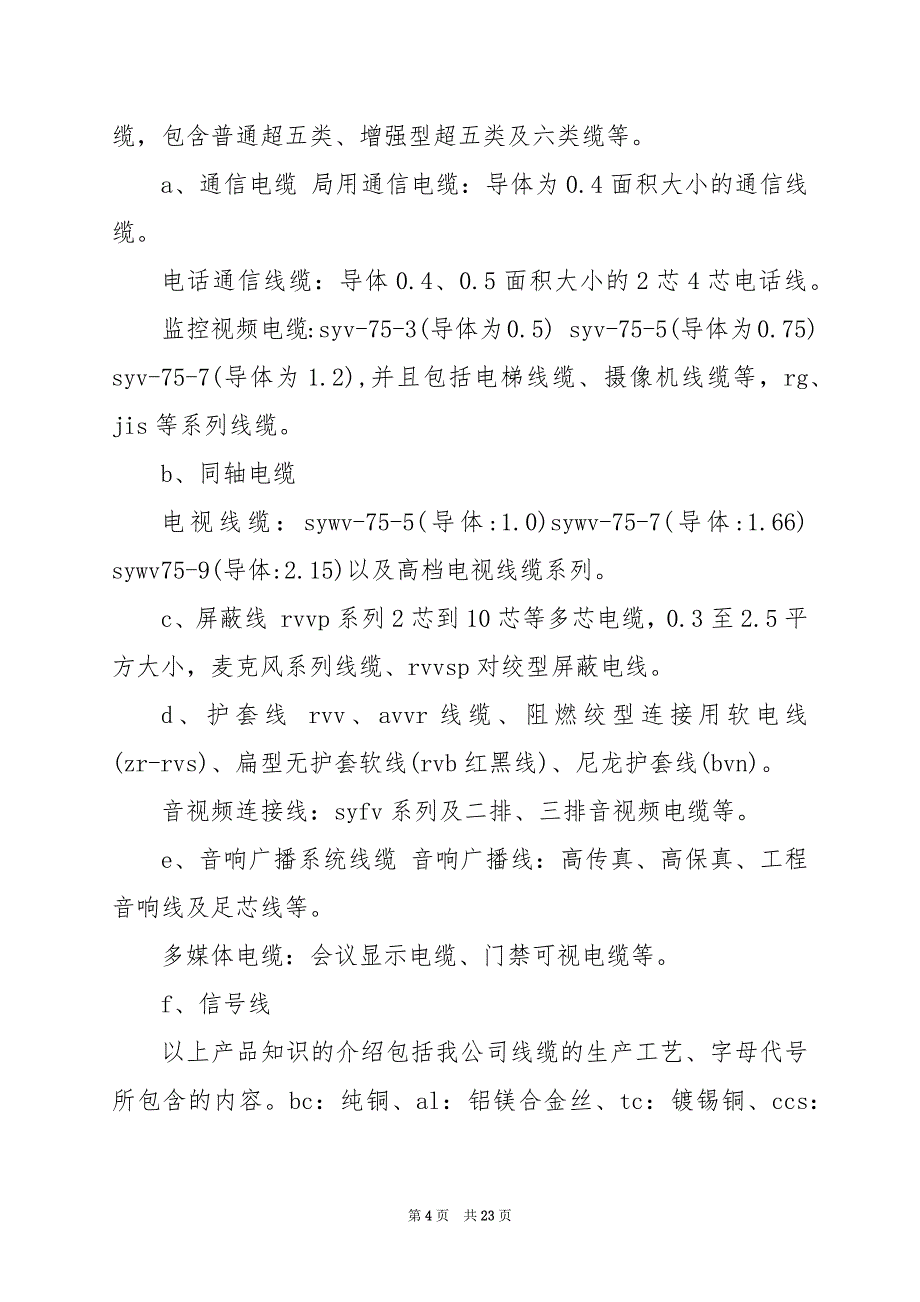 缆，包含普通超五类、增强型超五类及六类缆等。
a、通信电缆 局用通信电缆：导体为0.4面积大小的通信线
缆。
电话通信线缆：导体0.4、0.5面积大小的2芯4芯电话线。
监控视频电缆:syv-75-3(导体为0.5) syv-75-5(导体为0.75)
syv-75-7(导体为1.2),并且包括电梯线缆、摄像机线缆等，rg、
jis等系列线缆。
b、同轴电缆
电视线缆：sywv-75-5(导体:1.0)sywv-75-7(导体:1.66)
sywv75-9(导体:2.15)以及高档电视线缆系列。
c、屏蔽线 rvvp系列2芯到10芯等多芯电缆，0.3至2.5平
方大小，麦克风系列线缆、rvvsp对绞型屏蔽电线。
d、护套线 rvv、avvr线缆、阻燃绞型连接用软电线
(zr-rvs)、扁型无护套软线(rvb红黑线)、尼龙护套线(bvn)。
音视频连接线：syfv系列及二排、三排音视频电缆等。
e、音响广播系统线缆 音响广播线：高传真、高保真、工程
音响线及足芯线等。
多媒体电缆：会议显示电缆、门禁可视电缆等。
f、信号线
以上产品知识的介绍包括我公司线缆的生产工艺、字母代号
所包含的内容。bc：纯铜、al：铝镁合金丝、tc：镀锡铜、ccs：
第 4 页 共 23 页